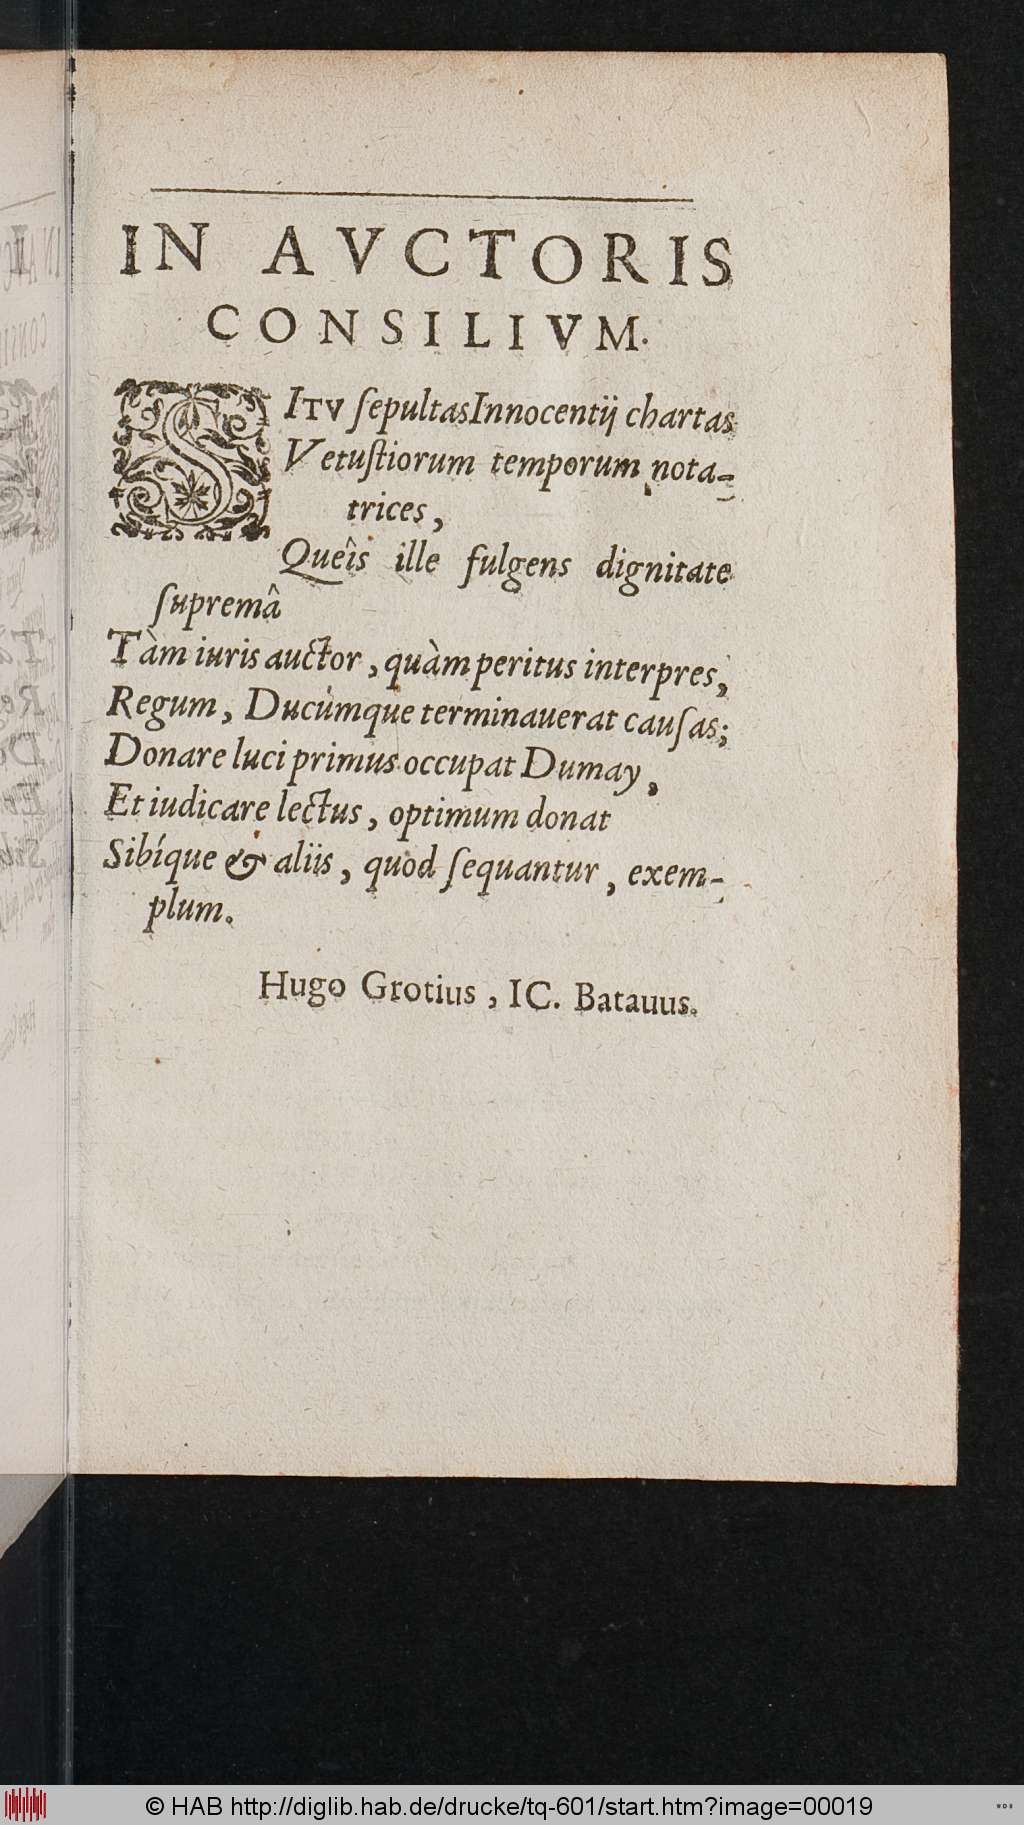 IN AVCTORIS
CONSILIVM.
SITV ſepultas Innocentij chartas
Vetuſtiorum temporum nota-
trices,
Queîs ille fulgens dignitate
ſupremâ
Tàm iuris auctor, quàm peritus interpres,
Regum, Ducúmque terminauerat cauſas;
Donare luci primus occupat Dumay,
Et iudicare lectus, optimum donat
Sibíque & aliis, quod ſequantur, exem-
plum.
Hugo Grotius, IC. Batauus.
© HAB http://diglib.hab.de/drucke/tq-601/start.htm?image=00019